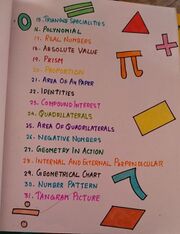 15. Triangle Specialities
16. Polynomial
17. Real Numbers
18. Absolute Value
19. Prism
20. Proportion
21. Area Of An Paper
22. Identities
23. Compound Interest
24. Quadrilaterals
25. Area Of Quadrilaterals
26. Negative Numbers
27. Geometry In Action
28. Internal And External Perpendicular
29. Geometrical Chart
30. Number Pattern
31. Tangram Picture
π